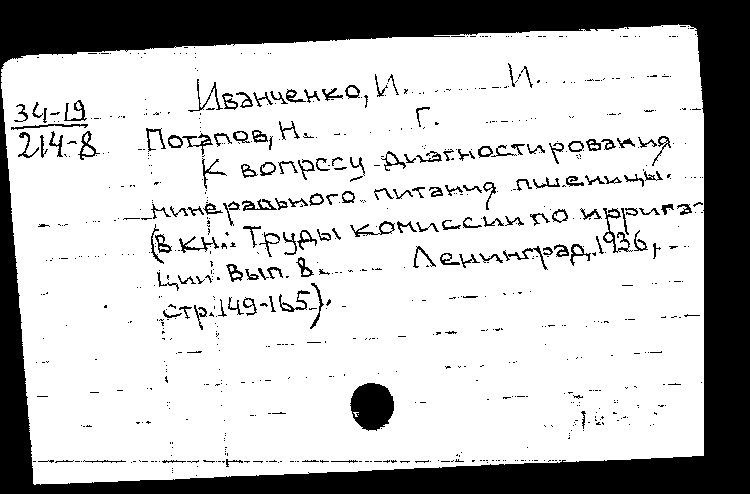 Иванченко, И. И.
34-19
214-8
Потапов, Н. Г.
К вопрссу диагностирования
минерального питания пшеницы.
(В кн.: Труды комиссии по иррига-
ции. Вып. 8. Ленинград, 1936,
стр. 149-165).